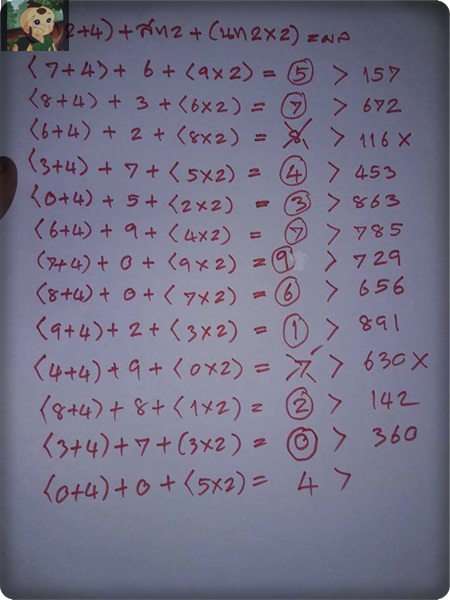 2+4) + สิท2 + (นท2×2) = ผล
(7+4) + 6 + (9×2) = 5 > 157
(8+4) + 3 + (6×2) = 7 > 672
(6+4) + 2 + (8×2) = 8 > 116 ×
(3+4) + 7 + (5×2) = 4 > 453
(0+4) + 5 + (2×2) = 3 > 863
(6+4) + 9 + (4×2) = 7 > 785
(7+4) + 0 + (9×2) = 9 > 729
(8+4) + 0 + (7×2) = 6 > 656
(9+4) + 2 + (3×2) = 1 > 891
(4+4) + 9 + (0×2) = 7 > 630 ×
(8+4) + 8 + (1×2) = 2 > 142
(3+4) + 7 + (3×2) = 0 > 360
(0+4) + 0 + (5×2) = 4 >